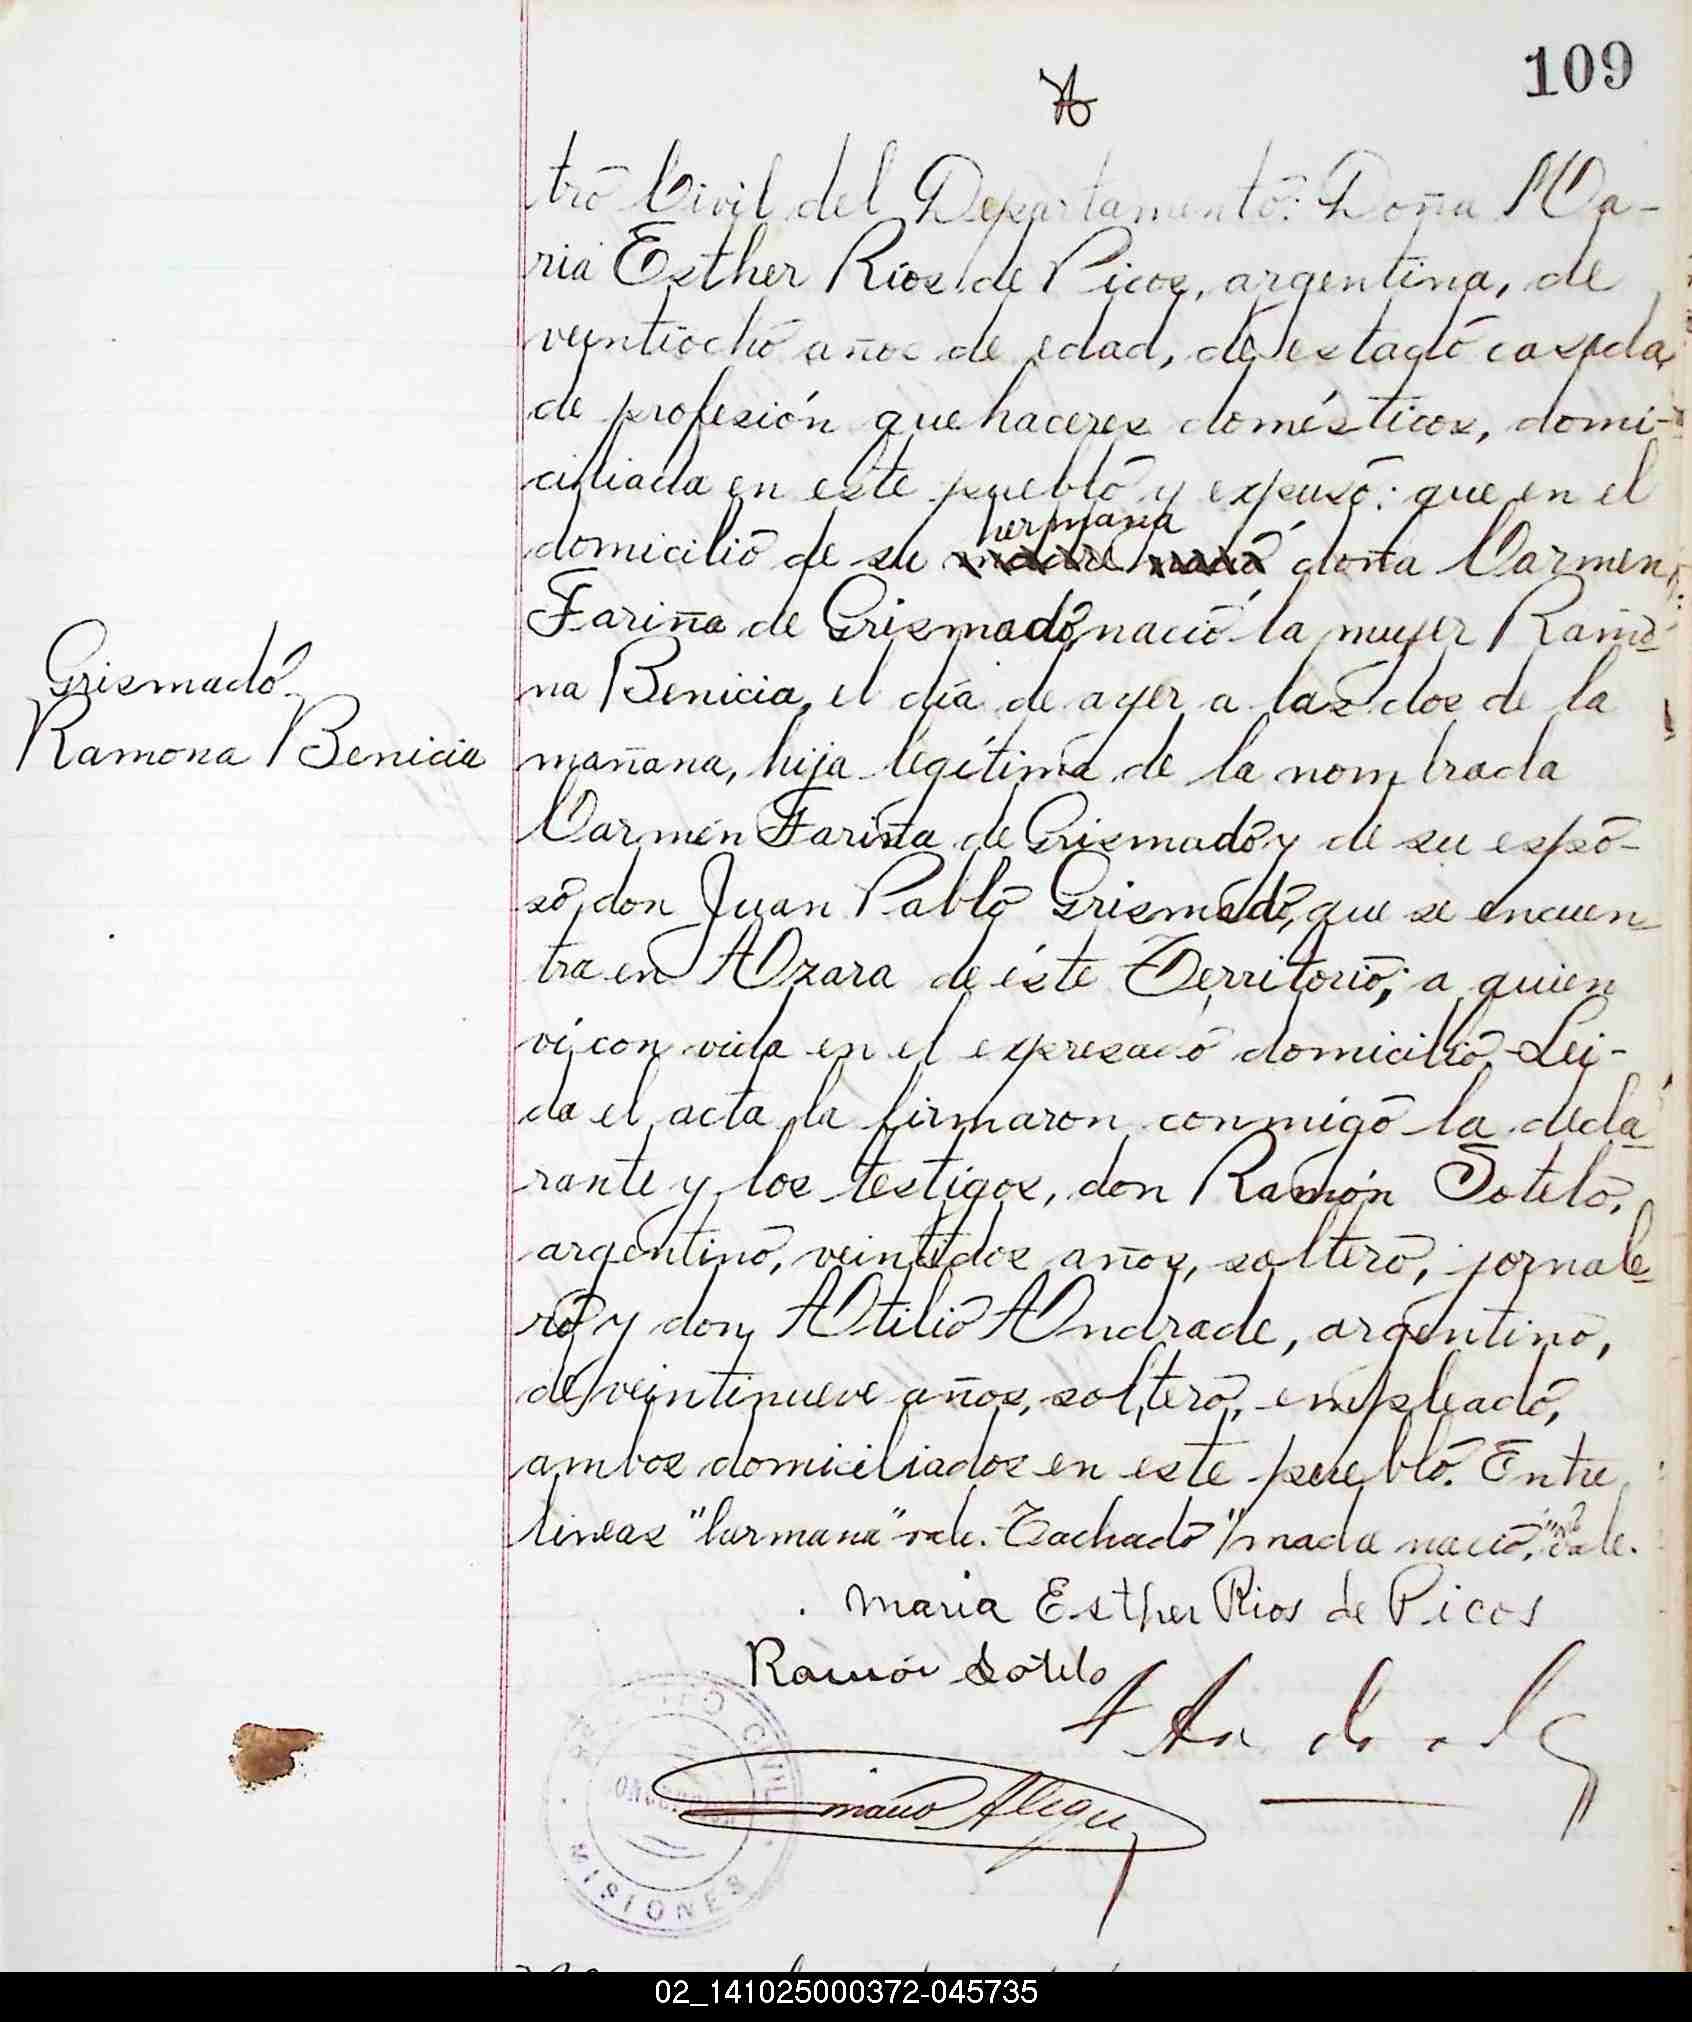 109
tro Civil del Departamento: Doña Ma-
ria Esther Rios de Picos, argentina, de
veintiocho años de edad, de estado casada,
de profesión que haceres domésticos, domi-
ciliada en este pueblo y expuso: que en el
hermana
domicilio de su madre nació doña Carmen
Fariña de Grismado, nació la mujer Ramo-
Grismado
na Benicia, el día de ayer a las dos de la
Ramona Benicia
mañana, hija legítima de la nombrada
Carmen Fariña de Grismado y de su espo-
so, don Juan Pablo Grismado, que se encuen-
tra en Azara de éste Territorio; a quien
ví con vida en el expresado domicilio. Lei-
da el acta la firmaron conmigo la decla-
rante y los testigos, don Ramón Sotelo,
argentino, veintidos años, soltero, jornale-
ro y don Atilio Andrade, argentino,
de veintinueve años, soltero, empleado,
ambos domiciliados en este pueblo. Entre
lineas "hermana" vale. Tachado "mada nació," no vale.
Maria Esther Rios de Picos
Ramón Sotelo
A Andrade
CIVIL
MISIONES
02_141025000372-045735